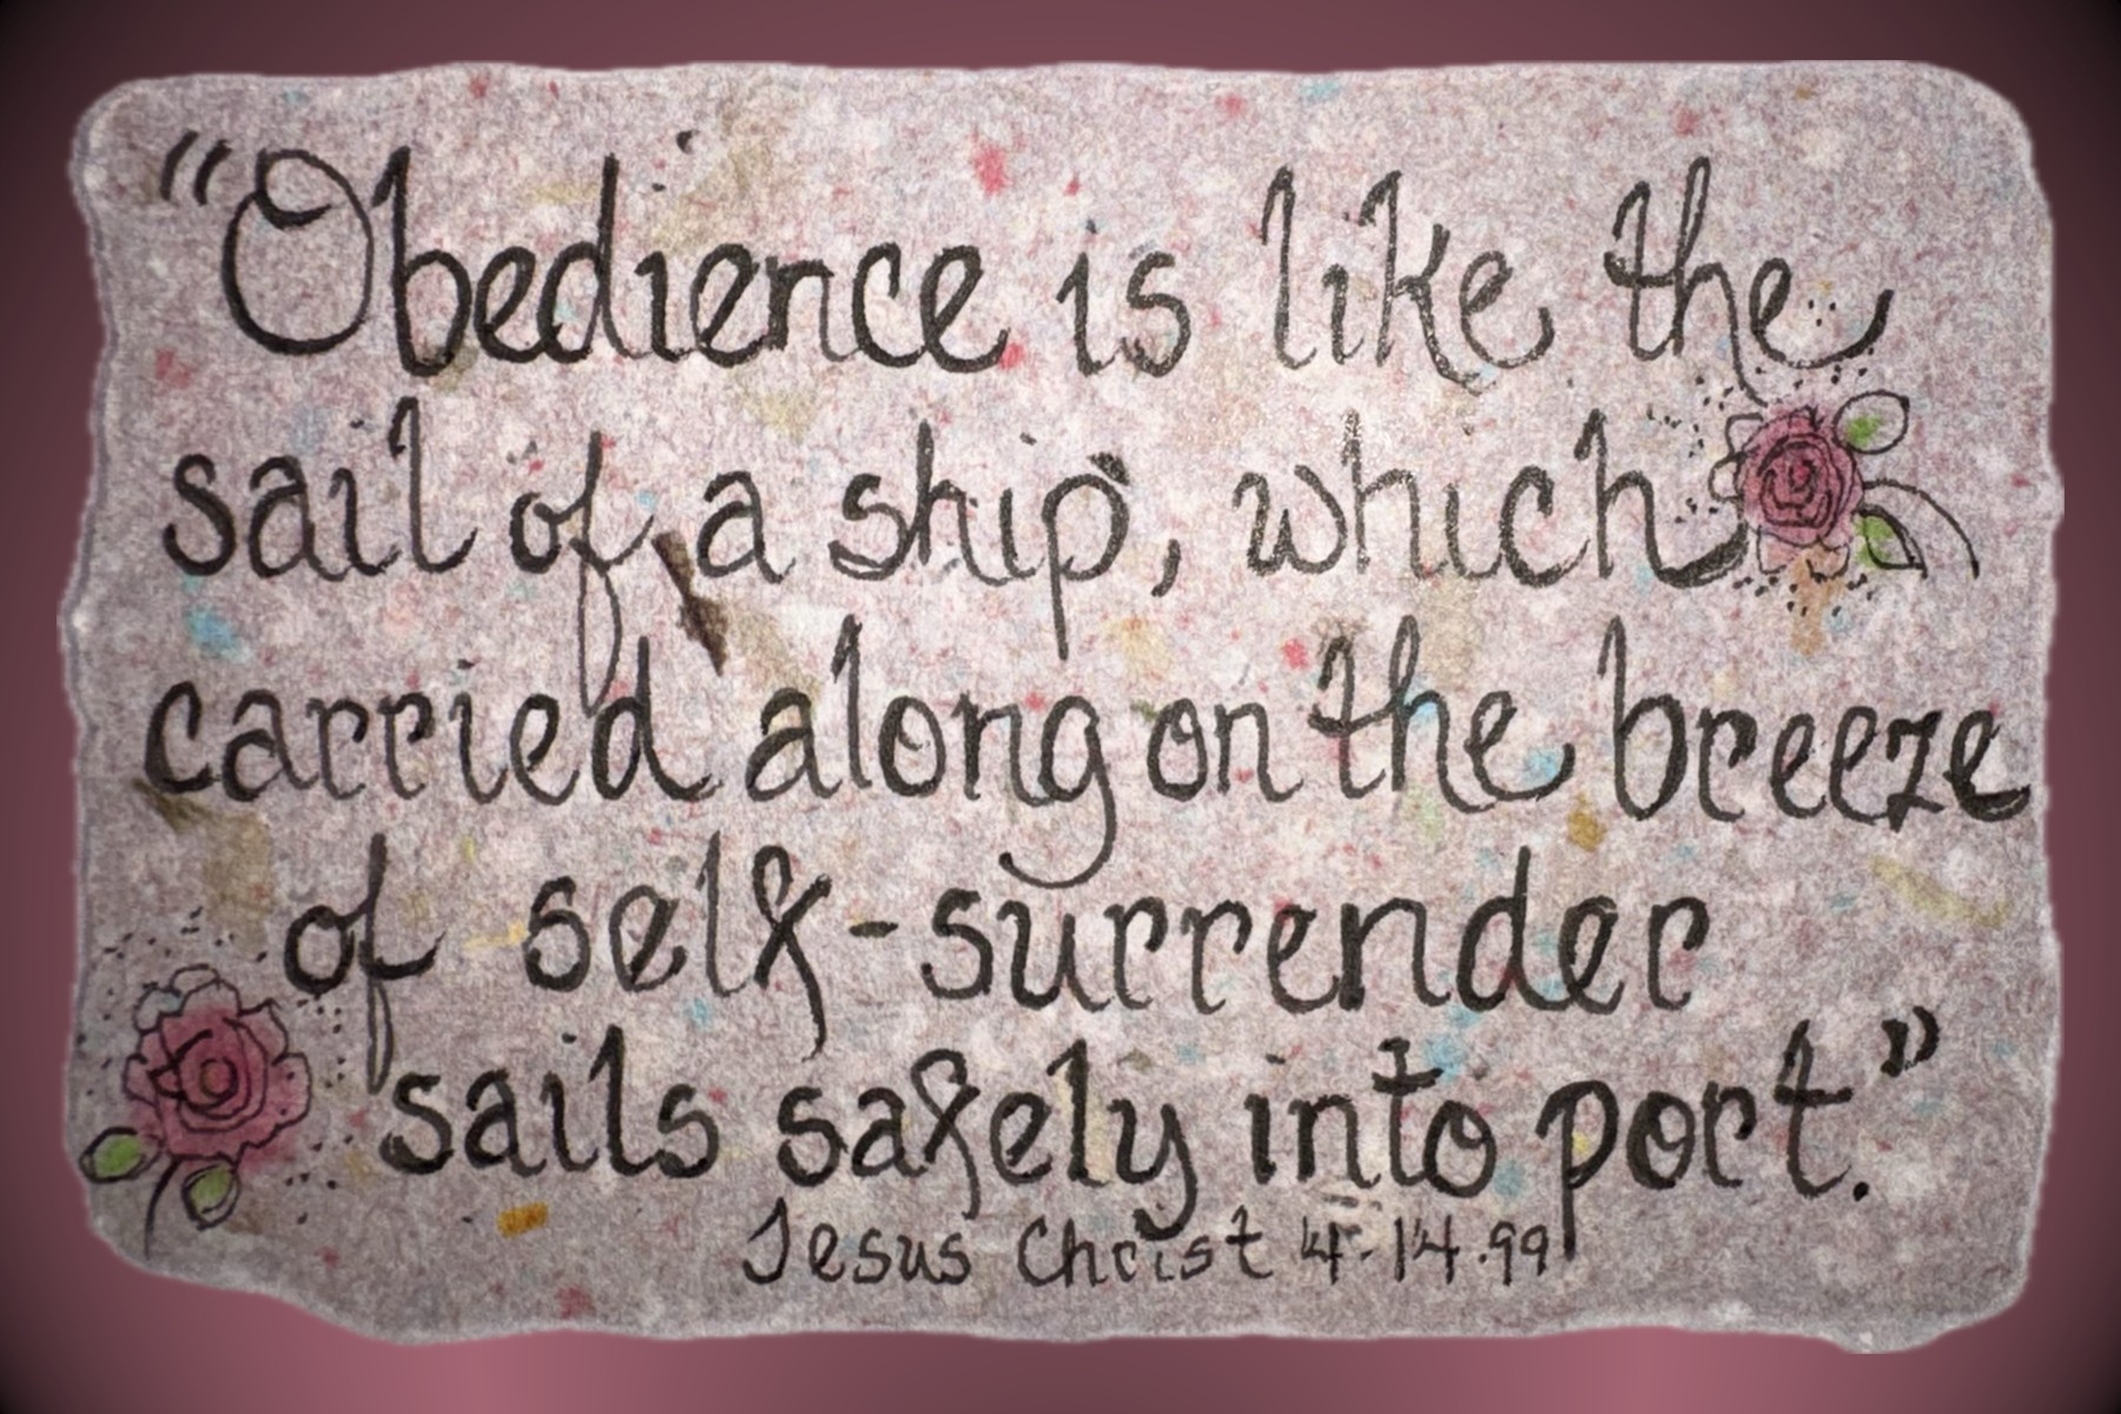 “Obedience is like the
sail of a ship, which
carried along on the breeze
of self-surrender
sails safely into port.”
Jesus Christ 4-14.99